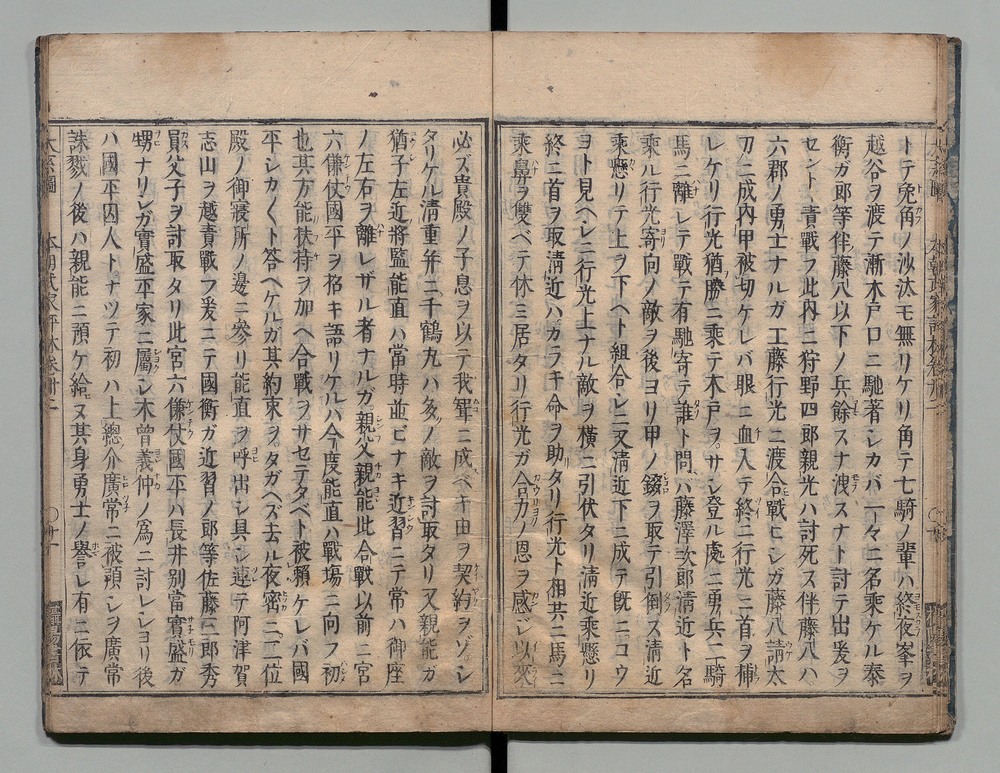 トテ兔角ノ沙汰モ無リケリ角テ七騎ノ輩ハ終夜峯ヲ
越谷ヲ渡テ漸木戸口ニ馳著シカバ一々ニ名乗ケル泰
衡ガ郎等伴藤八以下ノ兵餘スナ洩スナト討テ出爰ヲ
セント責戰フ此内ニ狩野四郎親光ハ討死ス伴藤八ハ
六郡ノ勇士ナルガ工藤行光ニ渡合戰ヒシガ藤八請太
刀ニ成内甲被切ケレバ眼ニ血入テ終ニ行光ニ首ヲ
レケリ行光猶勝ニ乗テ木戸ヲサシ登ル處ニ勇兵二騎
馬ニ離レテ戰テ有馳寄テ誰ト問ハ藤澤次郎清近ト名
乗ル行光寄向ノ敵ヲ後ヨリ甲ノ錣ヲ取テ引倒ス清近
乘懸リテ上ヲ下ヘト組合シニ又清近下ニ成テ既ニコウ
ヨト見ヘシニ行光上ナル敵ヲ横ニ引伏タリ清近乘懸リ
終ニ首ヲ取清近ハカラキ命ヲ助タリ行光ト相共ニ馬ニ
乘鼻ヲ雙ベテ休ミ居タリ行光ガ合力ノ恩ヲ感ジ以來
必ズ貴殿ノ子息ヲ以テ我聟ニ成ベキ由ヲ契約ヲゾシ
タリケル清重并ニ千鶴丸ハ多ノ敵ヲ討取タリ又親能ガ
猶子左近將監能直ハ常時並ビナキ近習ニテ常ハ御座
ノ左右ヲ離レザル者ナルガ親父親能此合戰以前ニ宮
六傔仗國平ヲ招キ語リケルハ今度能直ハ戰場ニ向フ初
也其方能扶持ヲ加ヘ合戰ヲサセテタベト被頼ケレバ國
平シカ〱ト答ヘケルガ其約束ヲタガヘズ去ル夜密ニ二位
殿ノ御寢所ノ邊ニ參リ能直ヲ呼出シ具シ連テ阿津賀
志山ヲ越責戰フ爰ニテ國衡ガ近習ノ郎等佐藤三郎秀
員父子ヲ討取タリ此宮六傔仗國平ハ長井別當實盛ガ
甥ナリシガ實盛平家ニ屬シ木曾義仲ノ爲ニ討レシヨリ後
ハ國平囚人トナツテ初ハ上總介廣常ニ被預シヲ廣常
誅戮ノ後ハ親能ニ預ケ給ヌ其身勇士ノ譽レ有ニ依テ